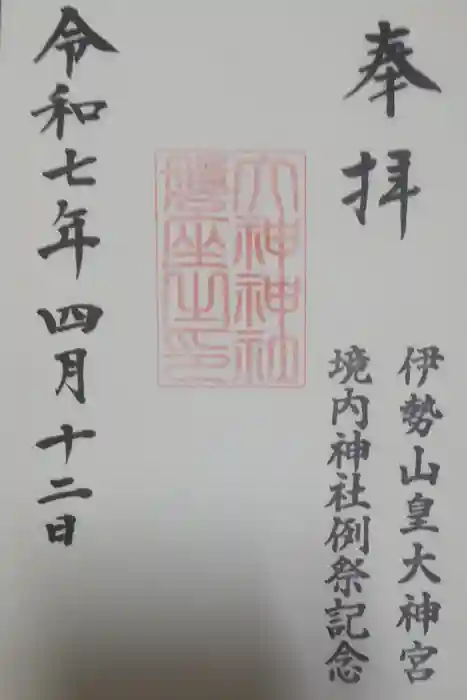 奉拝
伊勢山皇大神宮
境内神社例祭記念
大神神社
磐座之印
令和七年四月十二日